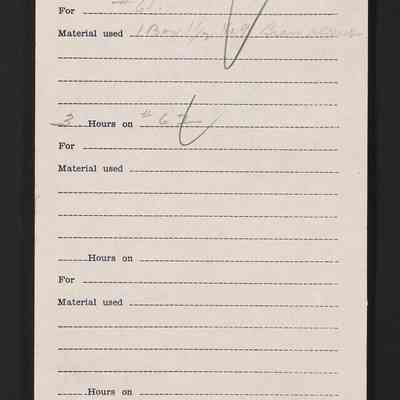 For # 61
Material used 1 Box 1/2
3 Hours on # 62
For
Material used
Hours on
For
Material used
Hours on